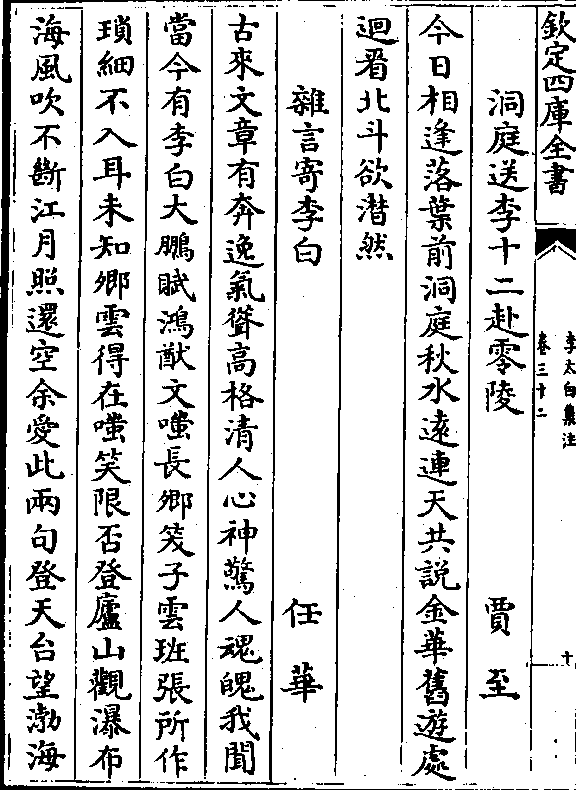 欽定四庫全書
李太白集注
卷三十二
十
洞庭送李十二赴零陵　賈至
今日相逢落葉前洞庭秋水遠連天共說金華舊遊處
迴看北斗欲潸然
雜言寄李白　任華
古來文章有奔逸氣聳高格清人心神驚人魂魄我聞
當今有李白大鵬賦鴻猷文嗤長卿笑子雲班張所作
瑣細不入耳未知卿雲得在嗤笑限否登廬山觀瀑布
海風吹不斷江月照還空余愛此兩句登天台望渤海